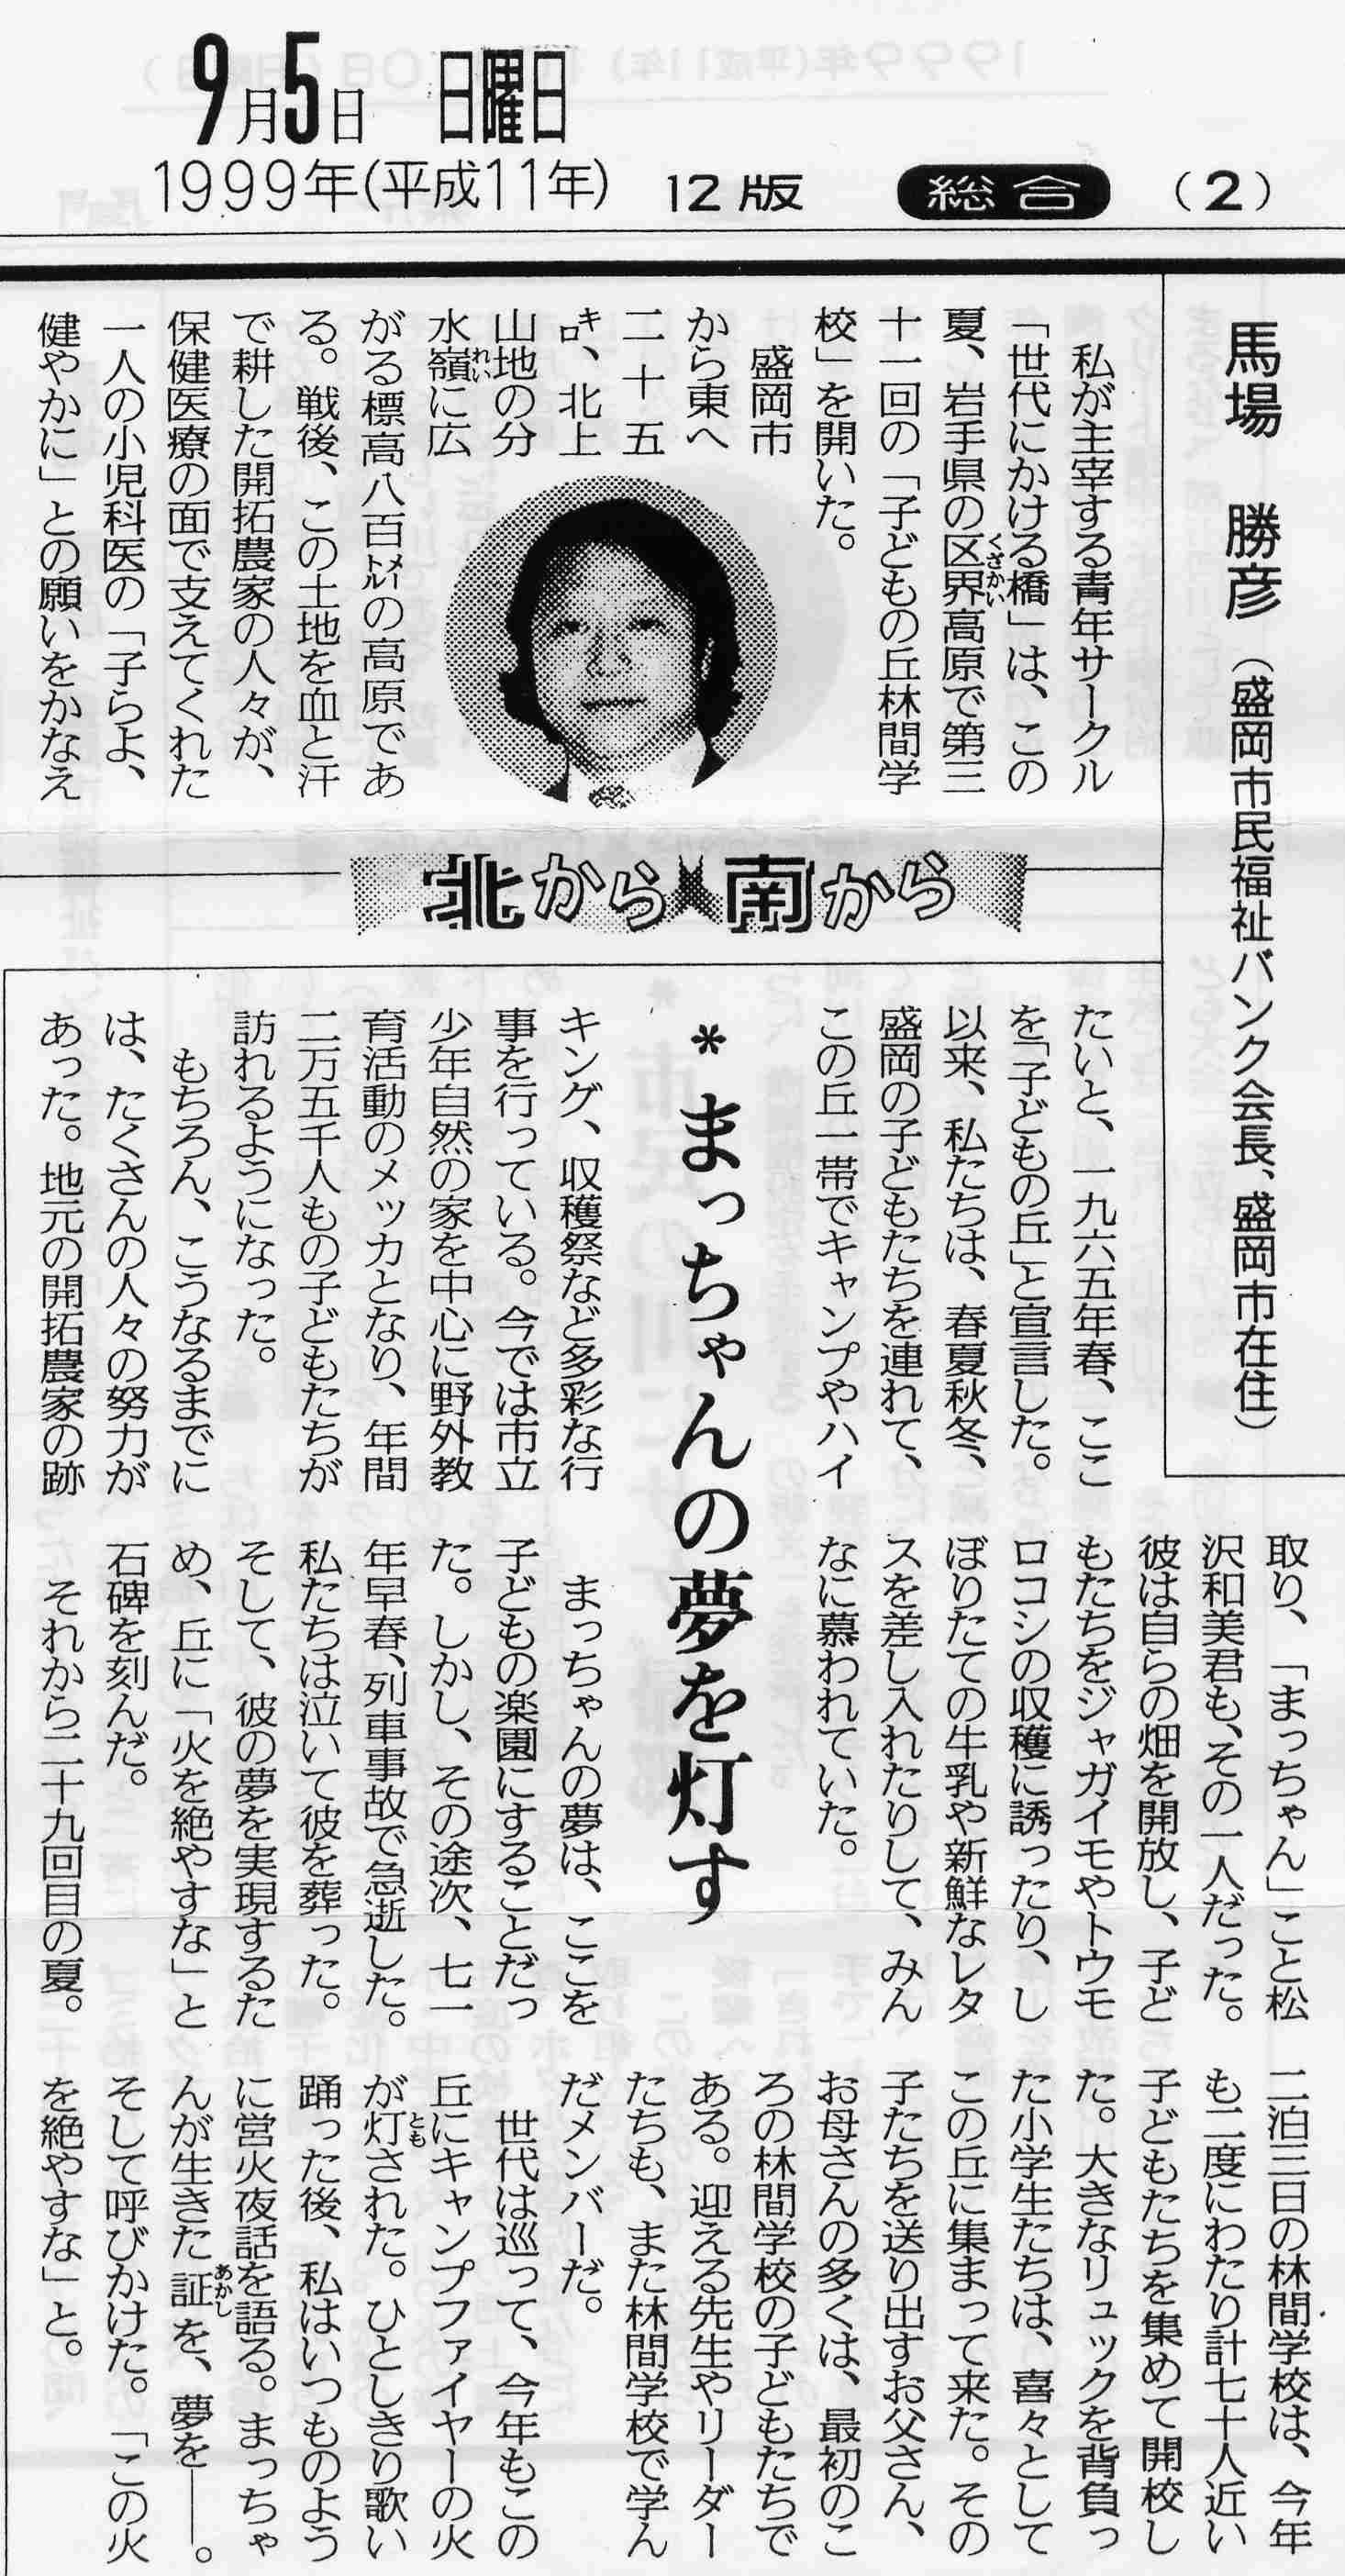 9月5日 日曜日
1999年(平成11年) 12版 総合 (2)
馬場 勝彦(盛岡市民福祉バンク会長、盛岡市在住)
私が主宰する青年サークル
「世代にかける橋」は、この
夏、岩手県の区界高原で第三
くざかい
十一回の「子どもの丘林間学
校」を開いた。
盛岡市
から東へ
二十五
㌔、北上
山地の分
水嶺に広
れい
がる標高八百㍍の高原であ
る。戦後、この土地を血と汗
で耕した開拓農家の人々が、
保健医療の面で支えてくれた
一人の小児科医の「子らよ、
健やかに」との願いをかなえ
北から南から
たいと、一九六五年春、ここ
を「子どもの丘」と宣言した。
以来、私たちは、春夏秋冬、
盛岡の子どもたちを連れて、
この丘一帯でキャンプやハイ
*まっちゃんの夢を灯す
キング、収穫祭など多彩な行
事を行っている。今では市立
少年自然の家を中心に野外教
育活動のメッカとなり、年間
二万五千人もの子どもたちが
訪れるようになった。
もちろん、こうなるまでに
は、たくさんの人々の努力が
あった。地元の開拓農家の跡
取り、「まっちゃん」こと松
沢和美君も、その一人だった。
彼は自らの畑を開放し、子ど
もたちをジャガイモやトウモ
ロコシの収穫に誘ったり、し
ぼりたての牛乳や新鮮なレタ
スを差し入れたりして、みん
なに慕われていた。
まっちゃんの夢は、ここを
子どもの楽園にすることだっ
た。しかし、その途次、七一
年早春、列車事故で急逝した。
私たちは泣いて彼を葬った。
そして、彼の夢を実現するた
め、丘に「火を絶やすな」と
石碑を刻んだ。
それから二十九回目の夏。
二泊三日の林間学校は、今年
も二度にわたり計七十人近い
子どもたちを集めて開校し
た。大きなリュックを背負っ
た小学生たちは、喜々として
この丘に集まって来た。その
子たちを送り出すお父さん、
お母さんの多くは、最初のこ
ろの林間学校の子どもたちで
ある。迎える先生やリーダー
たちも、また林間学校で学ん
だメンバーだ。
世代は巡って、今年もこの
丘にキャンプファイヤーの火
が灯された。ひとしきり歌い
とも
踊った後、私はいつものよう
に営火夜話を語る。まっちゃ
んが生きた証を、夢を――。
あかし
そして呼びかけた。「この火
を絶やすな」と。